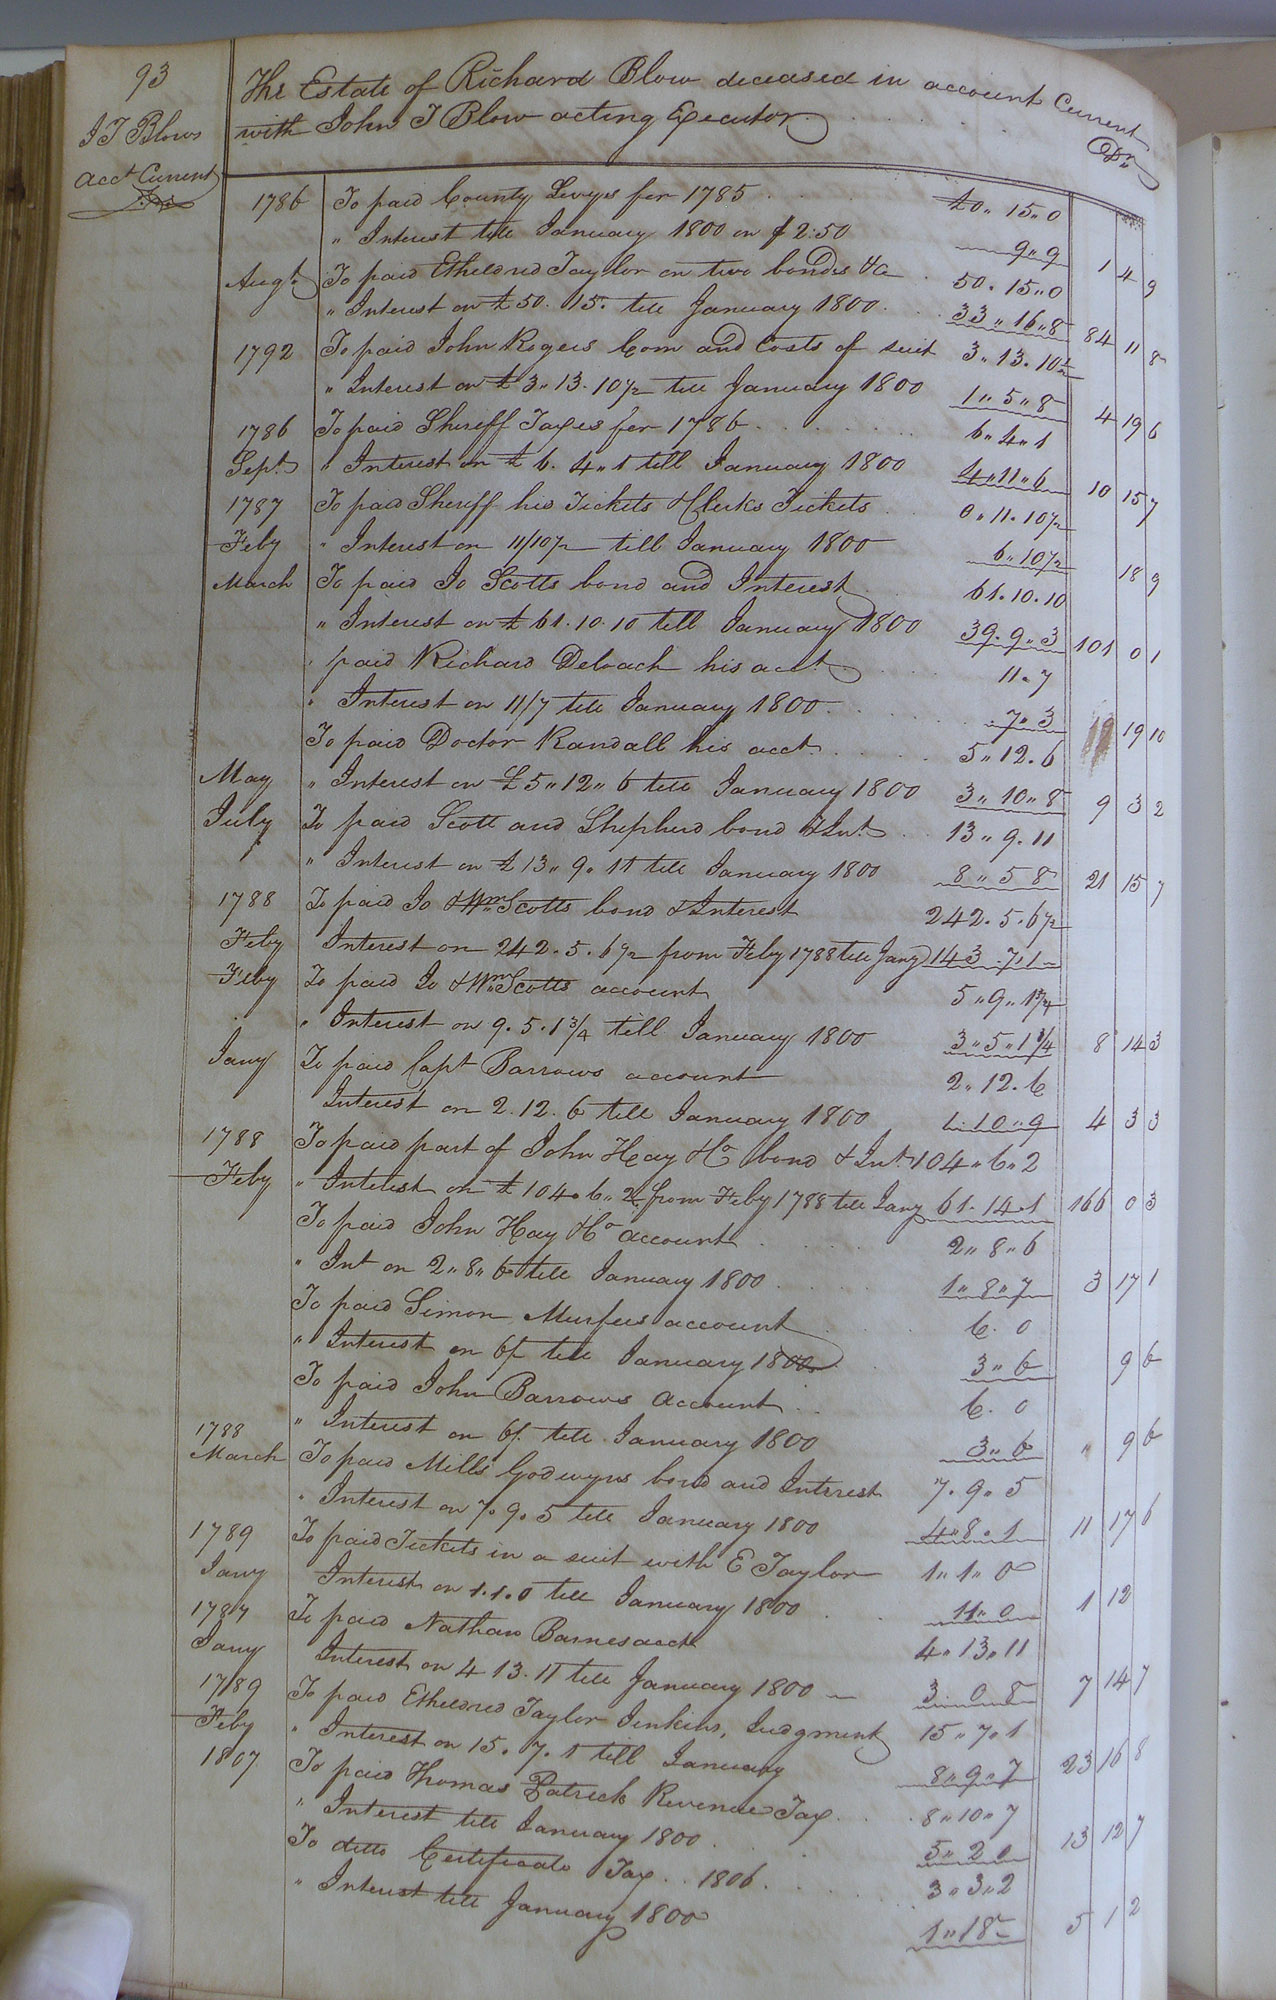 93
J T Blows
acct Current
Dr
The Estate of Richard Blow deceased in account Current
with John T Blow acting Executor Dr
1786 To paid County Levys for 1785 £0,, 15,, 0
,, Interest till January 1800 on $ 2:50 9,, 9 1 4 9
Augt To paid Etheldred Taylor on two bonds &c 50. 15,, 0
,, Interest on £50. 15. till January 1800 33,, 16,, 8 84 11 8
1792 To paid John Rogers Com and Costs of suit 3,, 13. 10 1/2
,, Interest on £3,, 13. 10 1/2 till January 1800 1,, 5,, 8 4 19 6
1786 To paid Sheriff Taxes for 1786 6,, 4,, 1
Sept ,, Interest on £6. 4,, 1 till January 1800 4,, 11,, 6 10 15 7
1787 To paid Sheriff his Tickets & Clerks Tickets 0,, 11. 10 1/2
Feby ,, Interest on 11/10 1/2 till January 1800 6,, 10 1/2 18 9
March To paid Jo Scotts bond and Interest 61. 10. 10
,, Interest on £61. 10. 10 till January 1800 39. 9,, 3 101 0 1
,, paid Richard Deloach his acct 11,, 7
,, Interest on 11/7 till January 1800 7,, 3 19 10
To paid Doctor Randall his acct 5,, 12. 6
May ,, Interest on £5,, 12,, 6 till January 1800 3,, 10,, 8 9 3 2
July To paid Scott and Shepherd bond & Int 13,, 9. 11
,, Interest on £13,, 9. 11 till January 1800 8,, 5 8 21 15 7
1788 To paid Jo & Wm Scotts bond & Interest 242. 5. 6 1/2
Feby Interest on 242. 5. 6 1/2 from Feby 1788 till Jany 143. 7. 1
Feby To paid Jo & Wm Scotts account 5,, 9,, 1 3/4
,, Interest on 9. 5. 1 3/4 till January 1800 3,, 5,, 1 3/4 8 14 3
Jany To paid Capt Barrows account 2,, 12. 6
Interest on 2. 12. 6 till January 1800 1. 10,, 9 4 3 3
1788 To paid part of John Hay & Co bond & Int 104,, 6,, 2
Feby ,, Interest on £104. 6,, 2 from Feby 1788 till Jany 61. 14. 1 166 0 3
To paid John Hay & Co account 2,, 8,, 6
,, Int on 2,, 8,, 6 till January 1800 1,, 8,, 7 3 17 1
To paid Simon Murfees account 6. 0
,, Interest on 6/ till January 1800 3,, 6 9 6
To paid John Barrows account 6. 0
,, Interest on 6/ till January 1800 3,, 6 ,, 9 6
1788
March To paid Mills Godwyns bond and Interest 7. 9. 5
,, Interest on 7. 9. 5 till January 1800 4,, 8. 1 11 17 6
1789 To paid Tickets in a suit with E Taylor 1,, 1,, 0
Jany Interest on 1. 1. 0 till January 1800 11,, 0 1 12
1787 To paid Nathan Barnes acct 4,, 13,, 11
Jany Interest on 4 13. 11 till January 1800 3. 0. 8 7 14 7
1789 To paid Etheldred Taylor Jenkins, Judgment 15,, 7. 1
Feby ,, Interest on 15. 7. 1 till January 8,, 9,, 7 23 16 8
1807 To paid Thomas Patrick Revenue Tax 8,, 10,, 7
,, Interest till January 1800 5,, 2 0 13 12 7
To ditto Certificate Tax 1806 3,, 3,, 2
,, Interest till January 1800 1,, 18 5 1 2